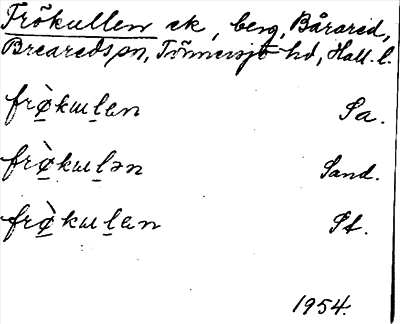 Frökullen ek, berg, Bårared,
Breareds sn, Tönnersjö hd, Hall. l.
frø̀kuḷen Sa.
frø̀kuḷən Sand.
frø̀kuḷen St.
1954.